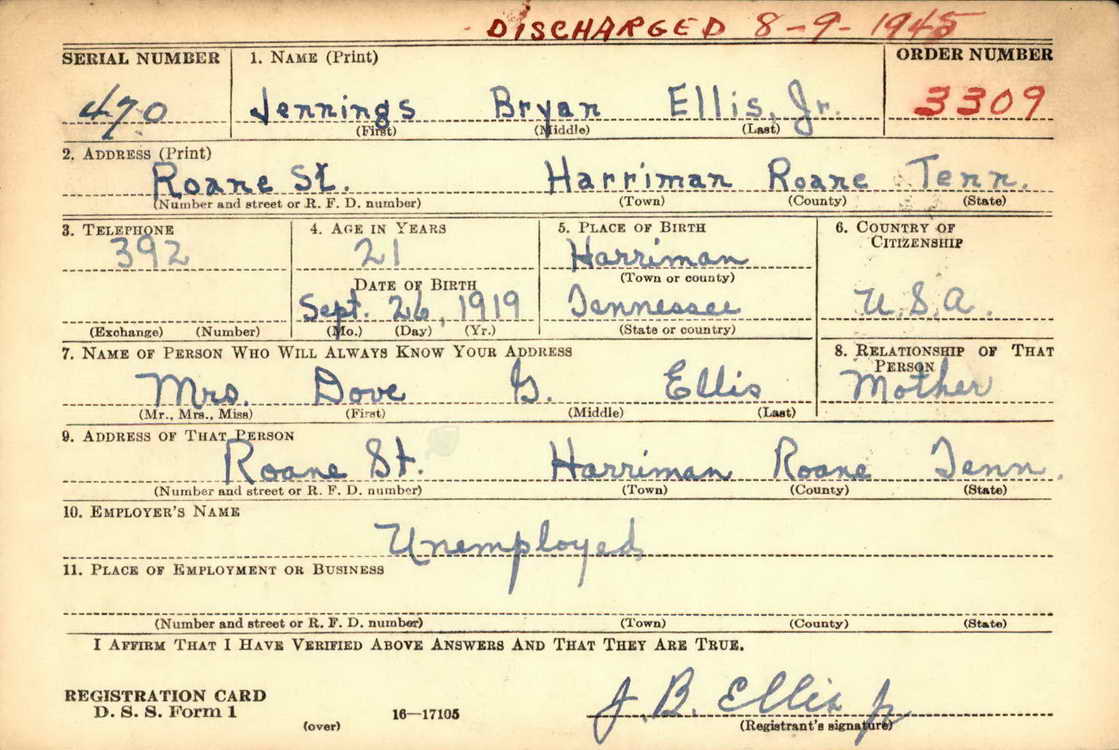 DISCHARGED 8-9-1945
SERIAL NUMBER 1. NAME (Print) ORDER NUMBER
470 Jennings Bryan Ellis, Jr. 3309
(First) (Middle) (Last)
2. ADDRESS (Print)
Roane St. Harriman Roane Tenn.
(Number and street or R. F. D. number) (Town) (County) (State)
3. TELEPHONE 4. AGE IN YEARS 5. PLACE OF BIRTH 6. COUNTRY OF CITIZENSHIP
392 21 Harriman
(Town or county)
DATE OF BIRTH
Sept. 26, 1919 Tennessee U.S.A.
(Exchange) (Number) (Mo.) (Day) (Yr.) (State or country)
7. NAME OF PERSON WHO WILL ALWAYS KNOW YOUR ADDRESS 8. RELATIONSHIP OF THAT PERSON
Mrs. Dove G. Ellis Mother
(Mr., Mrs., Miss) (First) (Middle) (Last)
9. ADDRESS OF THAT PERSON
Roane St. Harriman Roane Tenn.
(Number and street or R. F. D. number) (Town) (County) (State)
10. EMPLOYER'S NAME
Unemployed
11. PLACE OF EMPLOYMENT OR BUSINESS
(Number and street or R. F. D. number) (Town) (County) (State)
I AFFIRM THAT I HAVE VERIFIED ABOVE ANSWERS AND THAT THEY ARE TRUE.
REGISTRATION CARD
D. S. S. Form 1
(over) 16—17105
J. B. Ellis Jr
(Registrant's signature)